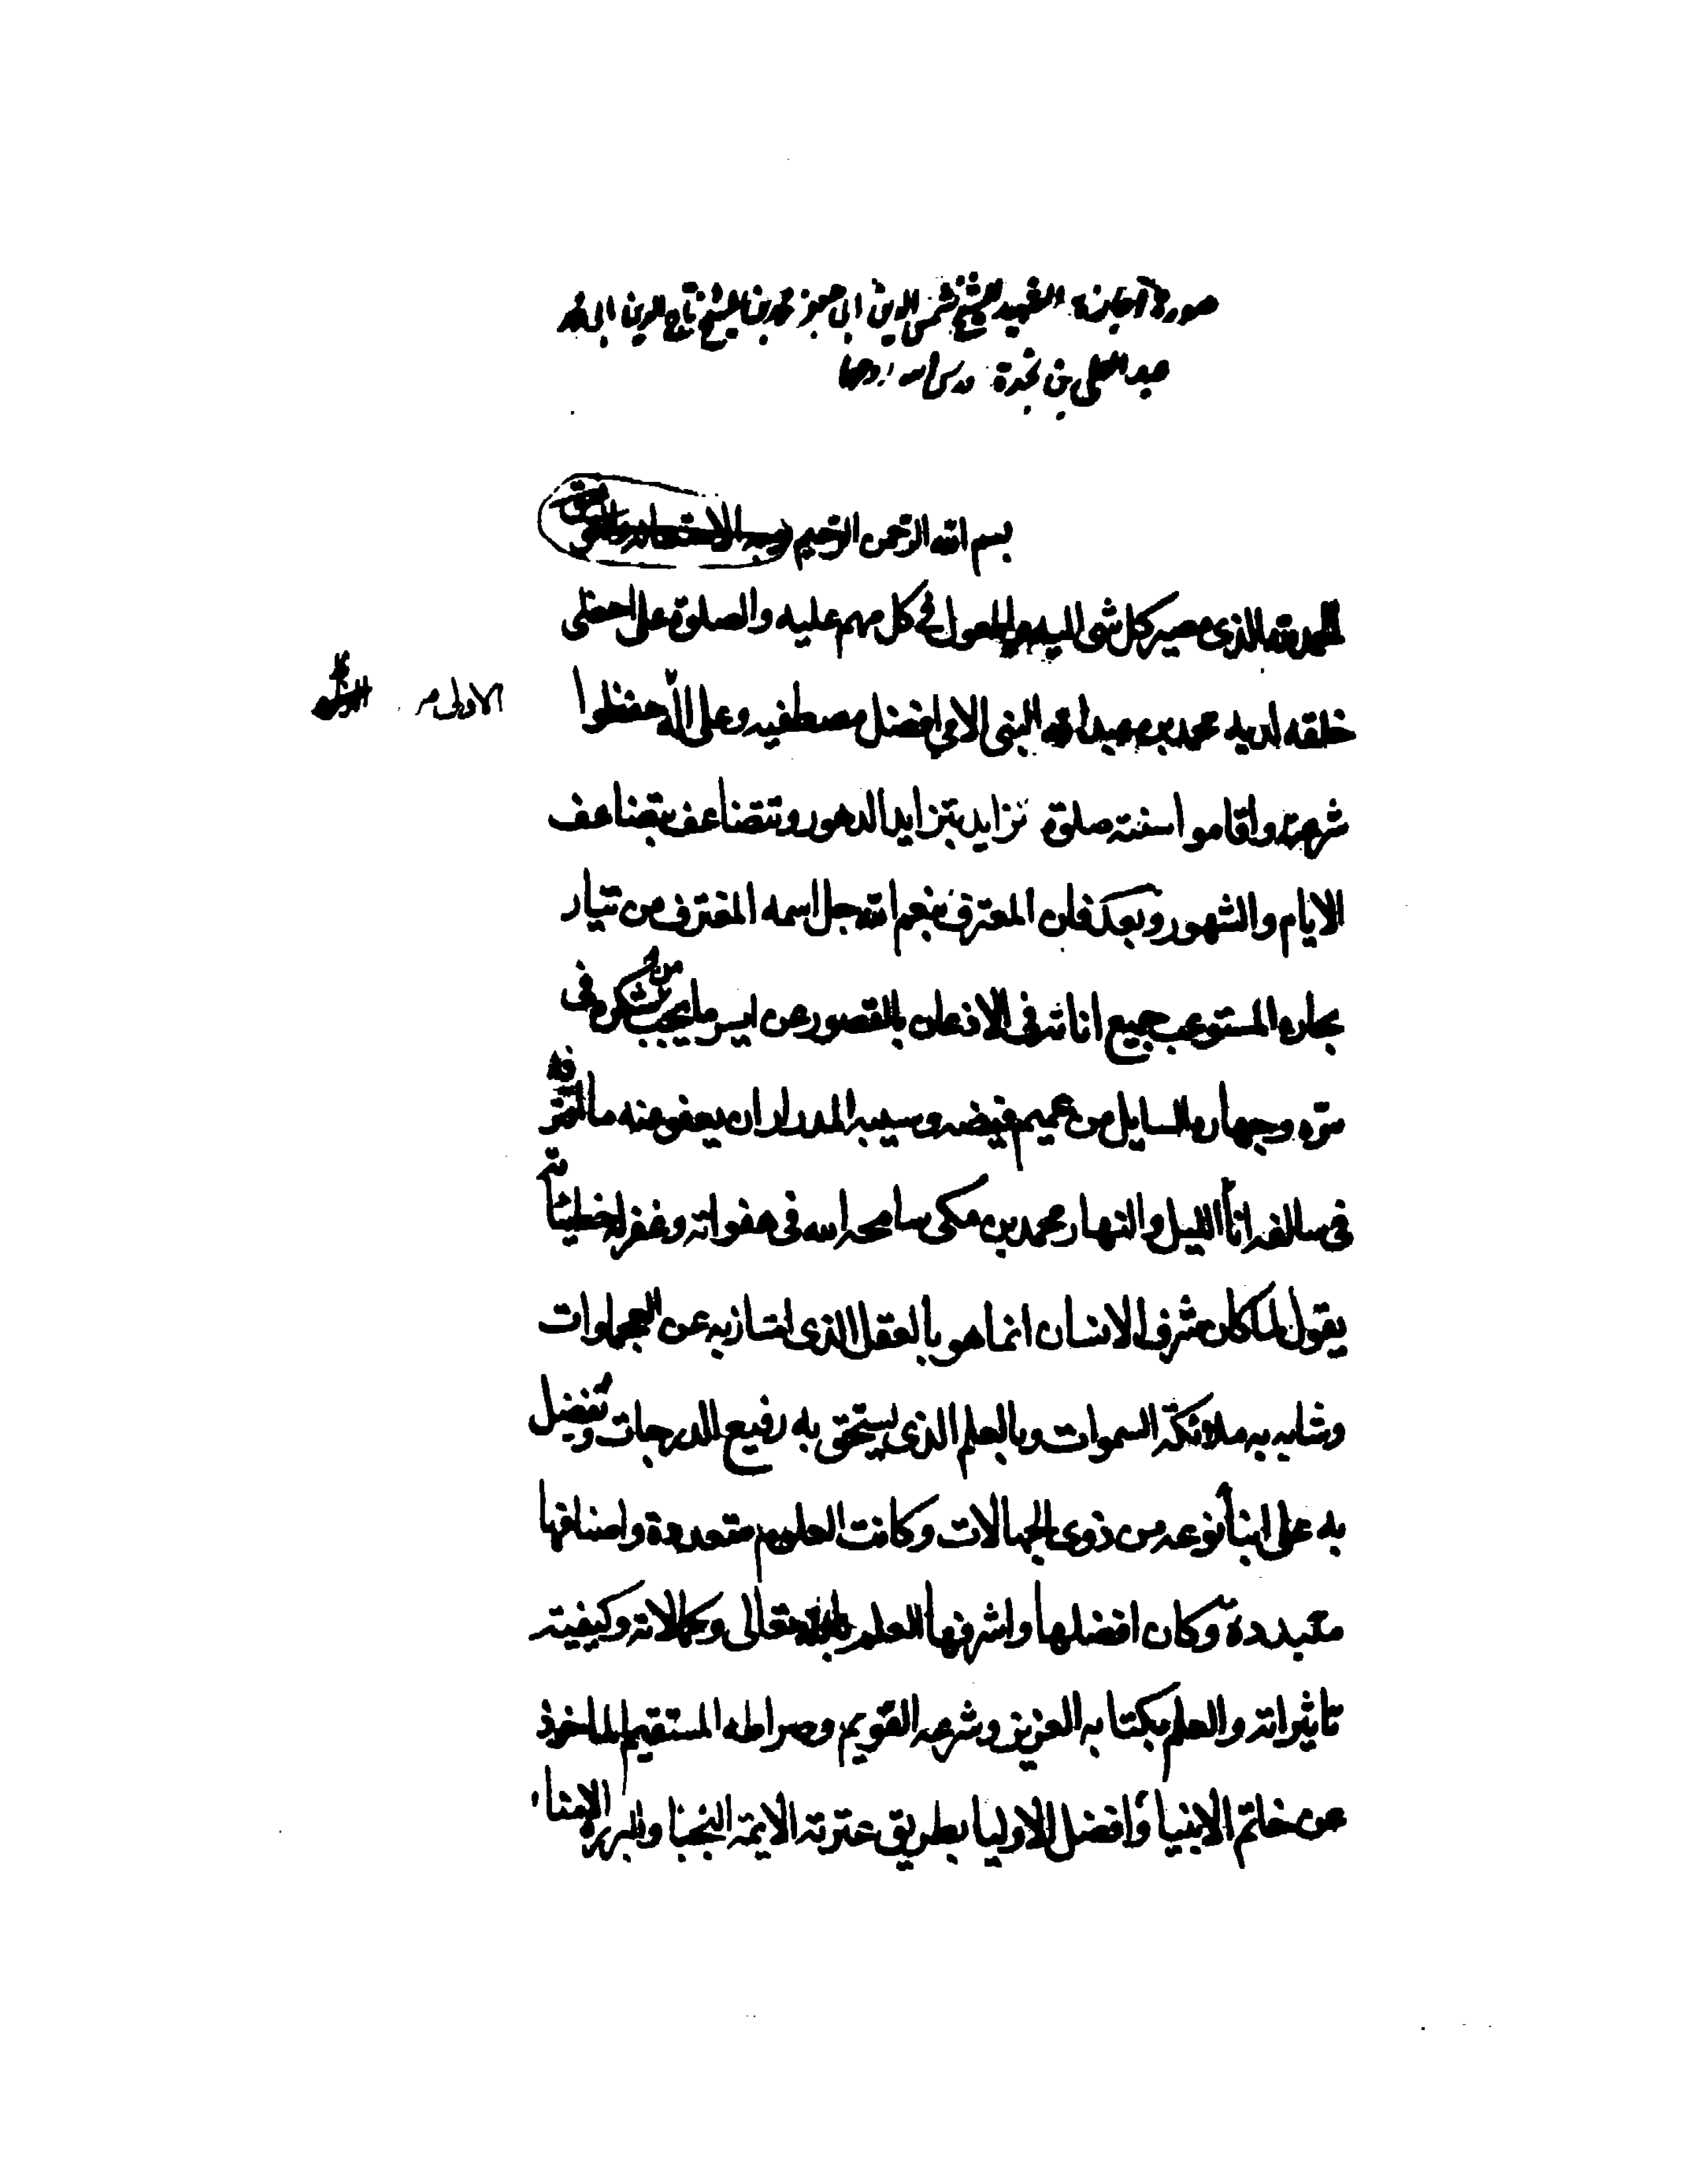 صورة اجازة الشهيد للشيخ شمس الدين ابى جعفر محمد بن الشيخ تاج الدين ابى محمد
عبد العلى بن نجدة قدس الله روحهما
بسم الله الرحمن الرحيم
الحمد لله الذى مصير كل شى اليه والمعول فى كل مهم عليه والصلوة على احظى
خلقه لديه محمد بن عبد الله النبى الامى افضل مصطفيه وعلى آله حفظوا
الاولى م
شرعه واقاموا سنته صلوة تزايد بتزايد الدهور وتتضاعف بتضاعف
الايام والشهور وبعد فان المعترف بنعم الله جل اسمه المغترف من تيار
بحاره المستوعب جميع اناته فى الاذعان بالقصور عن ايسر ما يجب من شكره فى
سره وجهاره السايل من عميم فيضه وسيبه المدرار ان يعفو عنه ما اقترفه
فى سالفه اناأ الليل والنهار محمد بن مكى سامحه الله فى هفواته وغفر له خطيئاته
يقول لما كان شرف الانسان انما هو بالعقل الذى امتاز به عن العجماوات
وشابه به ملائكة السموات وبالعلم الذى يستحق به رفيع الدرجات وتفضل
به على ابنأ نوعه من ذوى الجهالات وكانت العلوم متعددة واصنافها
متبددة وكان افضلها واشرفها العلم بالله تعالى وكمالاته وكيفية
تاثيراته والعلم بكتابه العزيز وشرعه القويم وصراطه المستقيم الماخوذ
عن خاتم الانبيأ وافضل الاوليا بطريق عترته الائمة النجبا والبررة الامناء